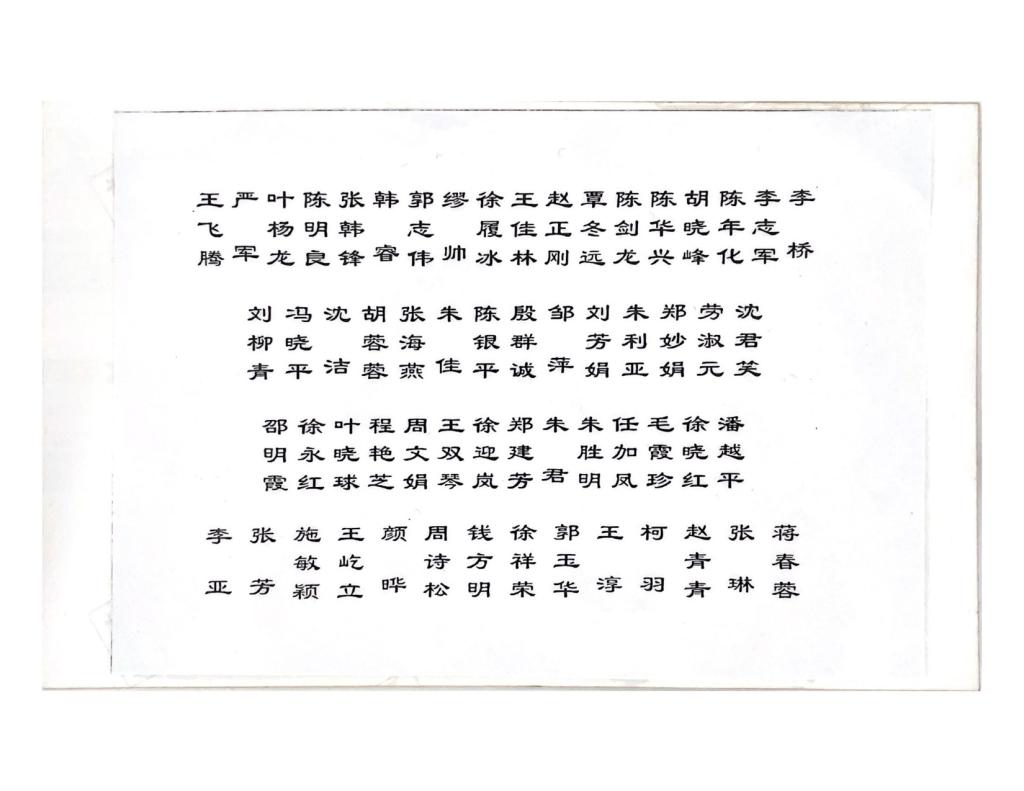 王飞腾
严军
叶杨龙
陈明良
张韩锋
韩睿
郭志伟
缪帅
徐履冰
王佳林
赵正刚
覃冬远
陈剑龙
陈华兴
胡晓峰
陈年化
李志军
李桥
刘柳青
冯晓平
沈洁
胡蓉蓉
张海燕
朱佳
陈银平
殷群诚
邹萍
刘芳娟
朱利亚
郑妙娟
劳淑元
沈君笑
邵明霞
徐永红
叶晓球
程艳芝
周文娟
王双琴
徐迎岚
郑建芳
朱君
朱胜明
任加凤
毛霞珍
徐晓红
潘越平
李亚
张芳
施敏颖
王屹立
颜晔
周诗松
钱方明
徐祥荣
郭玉华
王淳
柯羽
赵青青
张琳
蒋春蓉